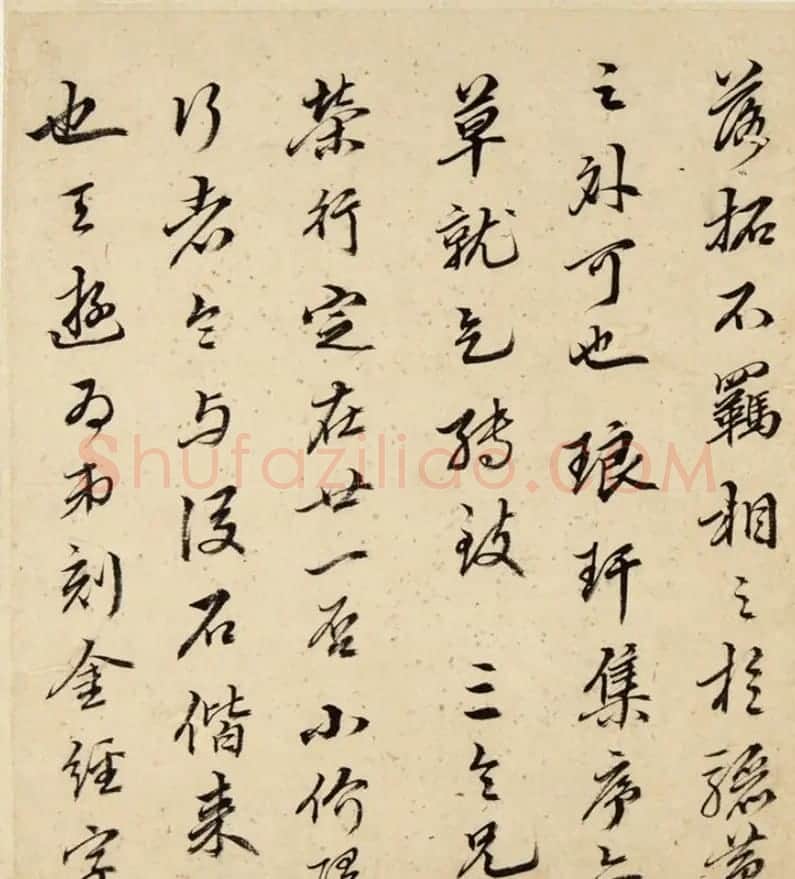 落拓不羈相之於驪黄
之外可也琅玕集序
草就乞轉致 三令兄
榮行定在廿一否小价
行者令与石偕来
也王为弟刻金經字
Shufaziliao.COM